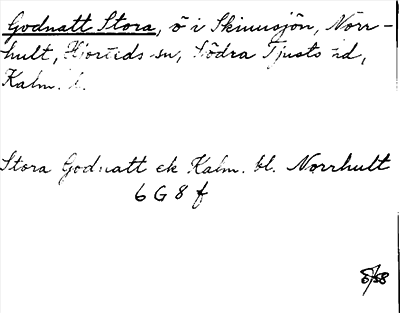 Godnatt Stora, ö i Skinusjön, Norr-
hult, Hjorteds sn, Södra Tjusts hd,
Kalm. l.
Stora Godnatt ek Kalm. bl. Norrhult
6 G 8 f